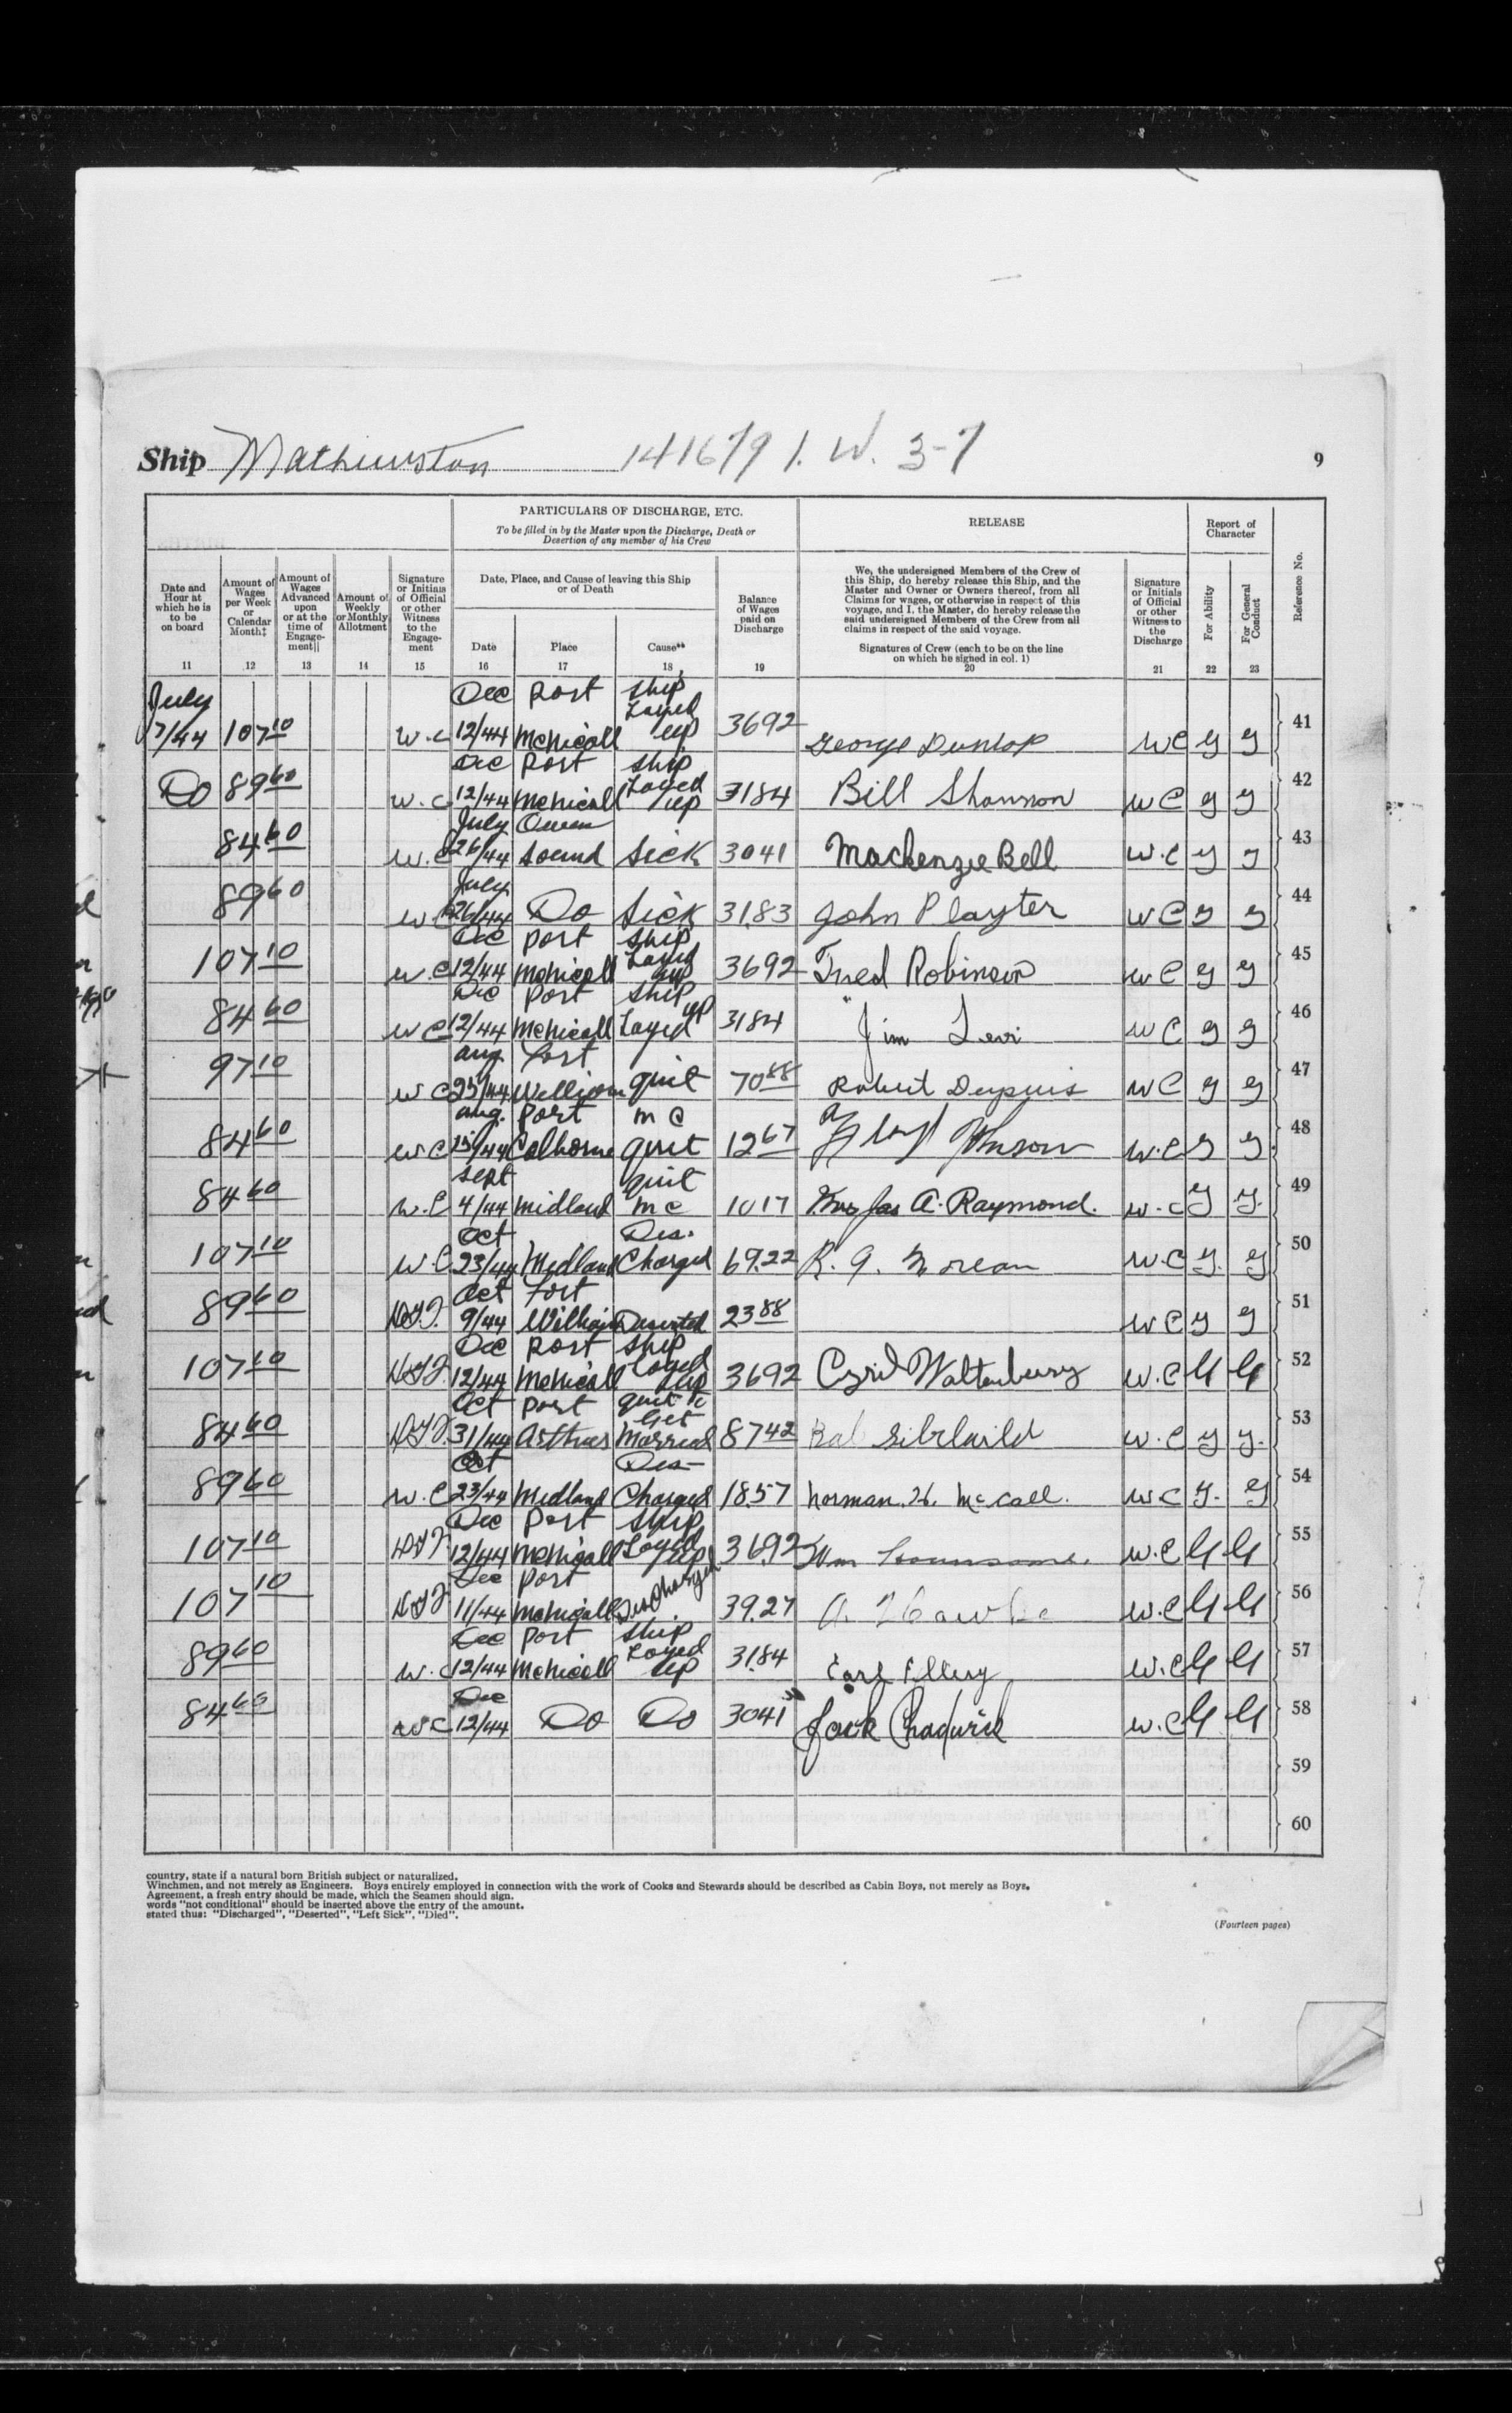 Ship Mathewston 141679 I. W. 3-7 9
PARTICULARS OF DISCHARGE, ETC.
To be filled in by the Master upon the Discharge, Death or
Desertion of any member of his Crew
RELEASE
Report of
Character
Reference No.
Date and
Hour at
which he is
to be
on board
11
Amount of
Wages
per Week
or
Calendar
Month‡
12
Amount of
Wages
Advanced
upon
or at the
time of
Engage-
ment||
13
Amount of
Weekly
or Monthly
Allotment
14
Signature
or Initials
of Official
or other
Witness
to the
Engage-
ment
15
Date, Place, and Cause of leaving this Ship
or of Death
Date
16
Place
17
Cause**
18
Balance
of Wages
paid on
Discharge
19
We, the undersigned Members of the Crew of
this Ship, do hereby release this Ship, and the
Master and Owner or Owners thereof, from all
Claims for wages, or otherwise in respect of this
voyage, and I, the Master, do hereby release the
said undersigned Members of the Crew from all
claims in respect of the said voyage.
Signatures of Crew (each to be on the line
on which he signed in col. 1)
20
Signature
or Initials
of Official
or other
Witness to
the
Discharge
21
For Ability
22
For General
Conduct
23
July 7/44 107 10 W.C Dec 12/44 Port McNicoll Ship Layed up 3692 George Dunlop WC G G 41
Do 89 60 W.C Dec 12/44 Port McNicoll Ship Layed up 3184 Bill Shannon WC G G 42
84 60 W.C July 26/44 Owen Sound Sick 3041 Mackenzie Bell W.C G G 43
89 60 WC July 26/44 Do Sick 31.83 John Playter WC G G 44
107 10 W.C Dec 12/44 Port McNicoll Ship Layed up 3692 Fred Robinson WC G G 45
84 60 WC Dec 12/44 Port McNicoll Ship Layed up 3184 Jim Levi WC G G 46
97 10 WC Aug. 25/44 Fort William quit 70 88 Robert Dupuis WC G G 47
84 60 WC Aug. 15/44 Port Colborne MC quit 12 67 W.C G G. 48
84 60 W.C Sept 4/44 Midland quit MC 1017 Jas A. Raymond. W.C G G. 49
107 10 W.C Oct 23/44 Midland Discharged 69.22 R. G. WC G. G 50
89 60 Oct 9/44 Fort William Deserted 23 88 WC G G 51
107 10 Dec 12/44 Port McNicoll Ship Layed up 3692 Cyril Waltenbury W.C G G 52
84 60 Oct 31/44 Port Arthur quit to Get Married 87 42 W.C G G. 53
89 60 W.C Oct 23/44 Midland Discharged 18.57 Norman. H. McCall. WC G. G 54
107 10 Dec 12/44 Port McNicoll Ship Layed up 36.92 Wm W.C G G 55
107 10 Dec 11/44 Port McNicoll Discharged 39.27 A. W.C G G 56
89 60 W.C Dec 12/44 Port McNicoll Ship Layed up 31.84 Earl Ellery W.C G G 57
84 60 WC Dec 12/44 Do Do 3041 Jack Chadwick W.C G G 58
59
60
country, state if a natural born British subject or naturalized.
Winchmen, and not merely as Engineers. Boys entirely employed in connection with the work of Cooks and Stewards should be described as Cabin Boys, not merely as Boys.
Agreement, a fresh entry should be made, which the Seamen should sign.
words "not conditional" should be inserted above the entry of the amount.
stated thus: "Discharged", "Deserted", "Left Sick", "Died".
(Fourteen pages)